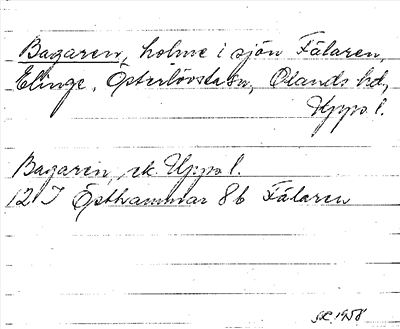 Bagaren, holme i sjön Fälaren,
Elinge, Österlövsta sn, Olands hd,
Upps l.
Bagaren, ek. Upps l.
12 I Östhammar 8b Fälaren
1958